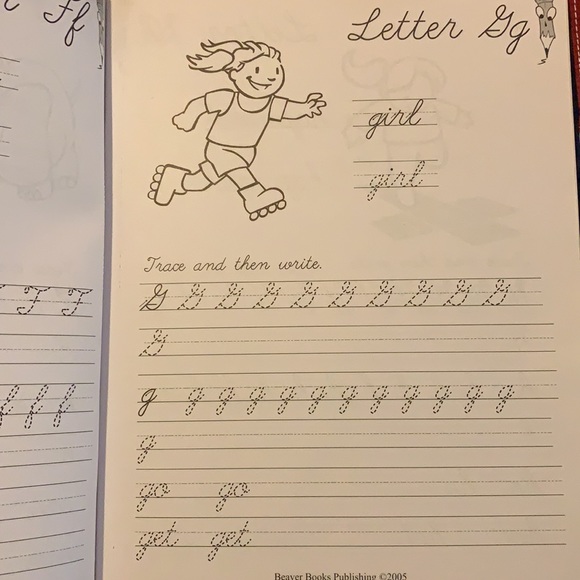 Ff
Letter Gg
girl
girl
Trace and then write.
F F
G G G G G G G G G G
G
f f f
g g g g g g g g g g g g
g
go go
get get
Beaver Books Publishing ©2005